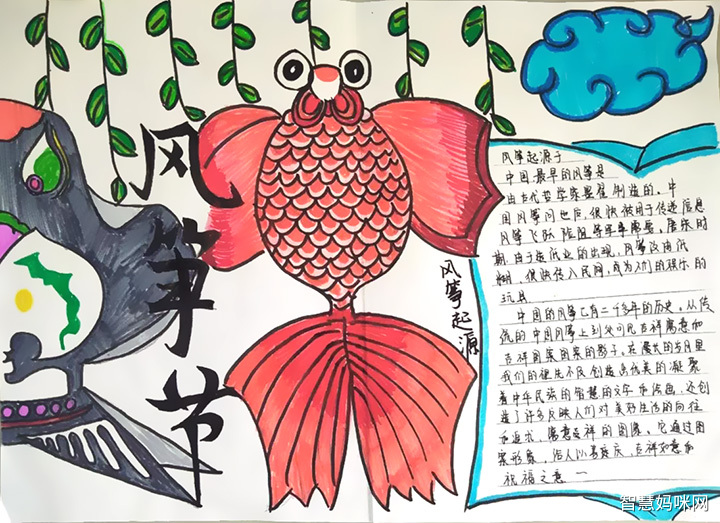 风筝节
风筝起源
风筝起源于
中国最早的风筝是
由古代哲学家墨翟制造的。中
国风筝问世后,很快被用于传递信息
飞跃险阻等军事需要。唐宋时
期由于造纸业的出现,风筝改由纸
糊,很快传入民间,成为人们的娱乐的
玩具
中国的风筝已有二千多年的历史。从传
统的中国风筝上到处可见吉祥寓意和
吉祥图案的影子。在漫长的岁月里
我们的祖先不仅创造出优美的凝聚
着中华民族的智慧的文字和绘画,还创
造了许多反映人们对美好生活的向往
和追求,寓意吉祥的图案。它通过图
案形象,给人以喜庆、吉祥如意和
祝福之意
智慧妈咪网